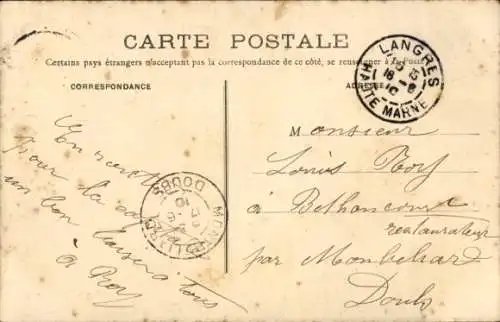 CARTE POSTALE
Certains pays étrangers n'acceptant pas la correspondance de ce côté, se renseigner à la Poste
CORRESPONDANCE
ADRESSE
LANGRES
HAUTE MARNE
DOUBS
En
pour la
un bon baiser à tous
à Roy
Monsieur
Louis Roy
à Bethoncourt
restaurateur
par Montbeliard
Doubs